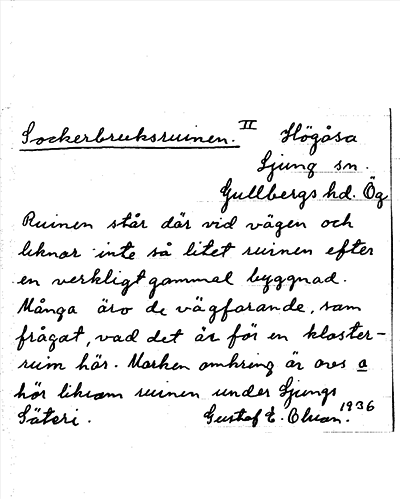 Sockerbruksruinen. II Högåsa
Ljung sn.
Gullbergs hd. Ög
Ruinen står där vid vägen och
liknar inte så litet ruinen efter
en verkligt gammal byggnad.
Många äro de vägfarande, som
frågat, vad det är för en kloster-
ruin här. Marken omkring är
hör liksom ruinen under Ljungs
Säteri. Gustaf E. Olsson. 1936